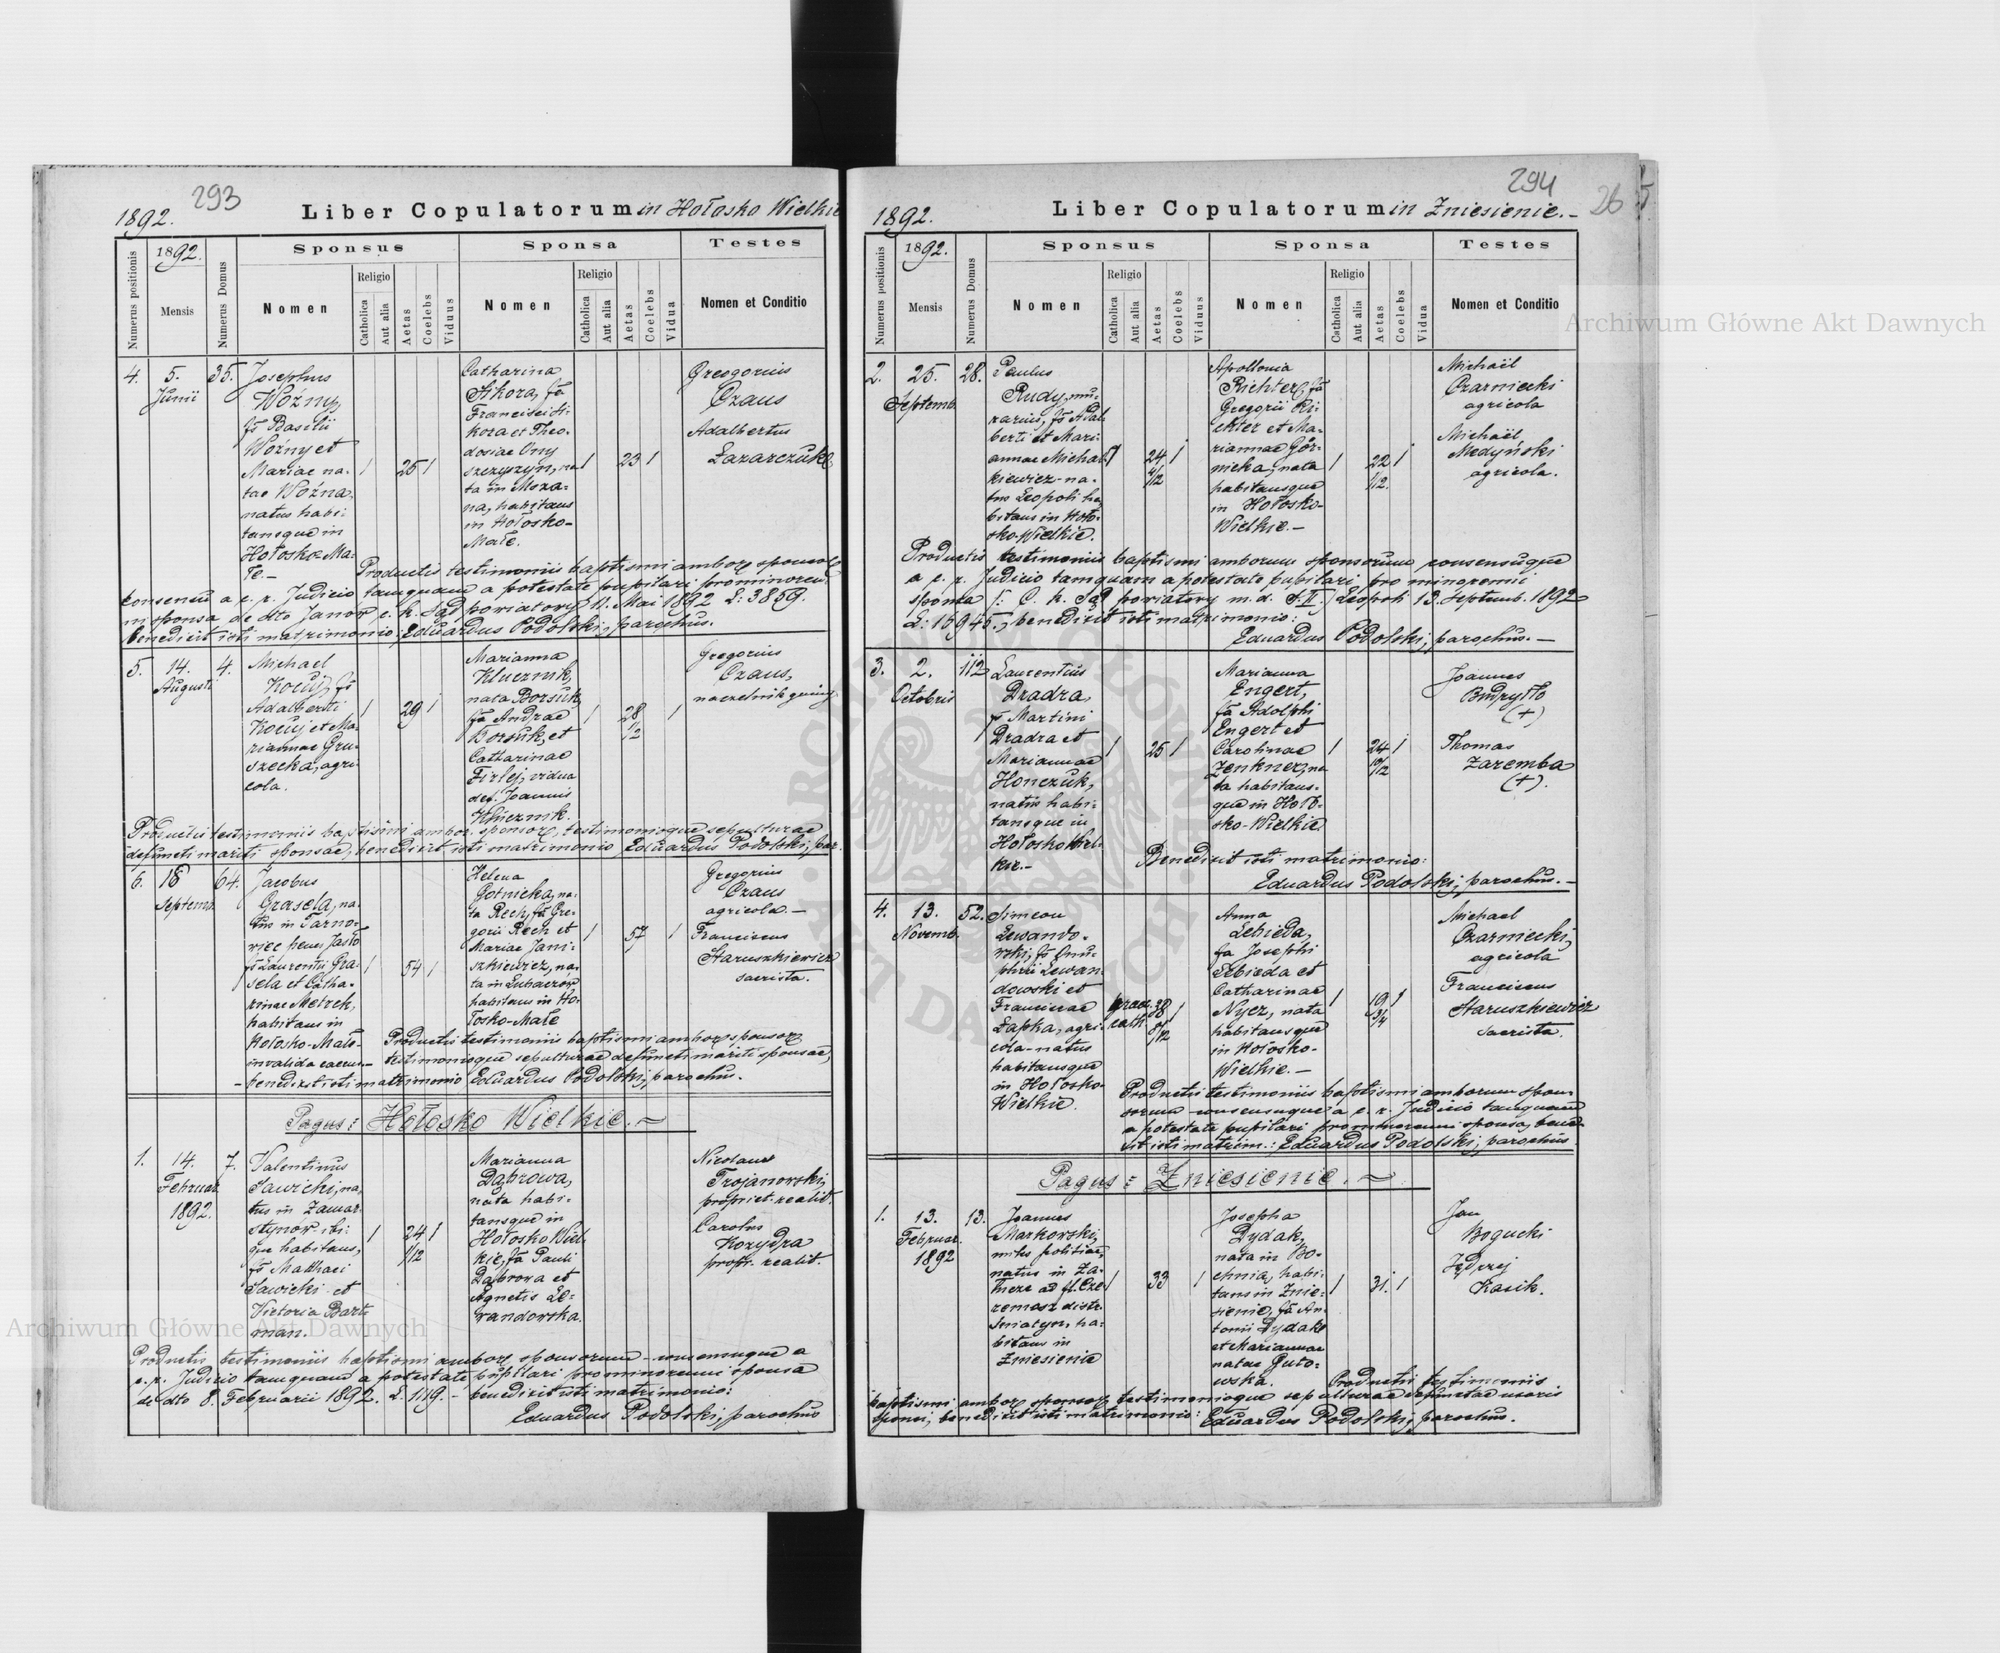 293
1892.
Liber Copulatorum in Hołosko Wielkie
Numerus positionis
1892.
Mensis
Numerus Domus
Sponsus
Nomen
Religio
Catholica
Aut alia
Aetas
Coelebs
Viduus
Sponsa
Nomen
Religio
Catholica
Aut alia
Aetas
Coelebs
Vidua
Testes
Nomen et Conditio
4.
5.
Junii
35.
Josephus
Woźny,
fs Basilii
Woźny et
Mariae na-
tae Woźna,
natus habi-
tansque in
Hołosko Ma-
łe.-
1
25
1
Catharina
Sikora, fa
Francisci Si-
kora et Theo-
dosiae Ony
szczyszyn, na
ta in Mosza-
na, habitans
in Hołosko-
Małe.
1
23
1
Gregorius
Czaus
Adalbertus
Łazarczuk
Productis testimoniis baptismi ambor sponsor
consensu a c. r. Judicio tamquam a potestate pupilari pro minoren
ni sponsa de dto Janów c. k. Sąd powiatowy 11. Mai 1892 L: 3859.
benedixit isti matrimonio: Eduardus Podolski, parochus.
5.
14.
Augusti
4.
Michael
Kociuj, fs
Adalberti
Kociuj et Ma-
riannae Gru-
szecka, agri-
cola.
1
29
1
Marianna
Klucznik,
nata Borsuk,
fa Andrae
Borsuk, et
Catharinae
Firlej, vidua
def. Joannis
Kluznik.
1
28
1/2
1
Gregorius
Czaus,
naczelnik gminy
Productis testimoniis baptismi ambor. sponsor, testimonioque sepulturae
defuncti mariti sponsae, benedixit isti matrimonio, Eduardus Podolski, par.
6.
18
Septemb.
64.
Jacobus
Grasela, na-
tus in Tarno-
wiec penes Jasło
fs Laurentii Gra-
sela et Catha-
rinae Metrek,
habitans in
Hołosko-Małe
1
54
1
Helena
Gotnicka, na-
ta Rech, fa Gre-
gorii Rech et
Mariae Jani-
szkiewicz, na-
ta in Lubaczow
habitans in Ho-
łosko-Małe
1
57
1
Gregorius
Czaus
agricola.-
Franciscus
Staruszkiewicz
sacrista.
Productis testimoniis baptismi ambor sponsor
testimonioque sepulturae defuncti mariti sponsae,
benedixit isti matrimonio Eduardus Podolski, parochus.
Pagus: Hołosko Wielkie.
1.
14.
Februar.
1892.
7.
Valentinus
Sawicki, na-
tus in Zamar-
stynow ibi-
que habitans,
fs Matthaei
Sawicki et
Victoria Bart-
man.
1
24
1/12
1
Marianna
Dąbrowa,
nata habi-
tansque in
Hołosko Wiel
kie, fa Pauli
Dąbrowa et
Agnetis Le-
wandowska.
Nicolaus
Trojanowski,
propriet. realit.
Carolus
Kozydra
propr. realit.
Productis testimoniis baptismi ambor sponsorum - consensuque a
c. r. Judicio tamquam a potestate pupilari pro minorenni sponsa
de dto 8. Februarii 1892. L. 1119. - benedixit isti matrimonio:
Eduardus Podolski, parochus
294
26
1892.
Liber Copulatorum in Zniesienie.-
Numerus positionis
1892.
Mensis
Numerus Domus
Sponsus
Nomen
Religio
Catholica
Aut alia
Aetas
Coelebs
Viduus
Sponsa
Nomen
Religio
Catholica
Aut alia
Aetas
Coelebs
Vidua
Testes
Nomen et Conditio
2.
25.
Septemb.
28.
Paulus
Rudy, mu-
rarius, fs Adal
berti et Mari-
annae Michal
kiewicz - na-
tus Leopoli ha
bitans in Hoło-
sko-Wielkie.
1
24
4/12
1
Apollonia
Richter, fa
Gregorii Ri-
chter et Ma-
riannae Gór-
nicka, nata
habitansque
in Hołosko-
Wielkie.-
1
22
1/12.
1
Michaël
Czarniecki
agricola
Michaël
Medyński
agricola.
Productis testimoniis baptismi amborum sponsorum consensuque
a c. r. Judicio tamquam a potestate pupilari pro minorenni
sponsa /: C. k. Sąd powiatowy m. d. S. II. / Leopoli 13. Septemb. 1892
L: 15945., benedixit isti matrimonio:
Eduardus Podolski, parochus.-
3.
2.
Octobris
112
Laurentius
Dradra,
fs Martini
Dradra et
Mariannae
Honczuk,
natus habi-
tansque in
Hołosko Wiel-
kie.-
1
25
1
Marianna
Engert,
fa Adolphi
Engert et
Carolinae
Zenkner, na
ta habitans-
que in Hoło-
sko-Wielkie.
1
24
10/12
1
Joannes
Budryło
(+)
Thomas
Zaremba
(+).
Benedixit isti matrimonio:
Eduardus Podolski, parochus.-
4.
13.
Novemb.
52.
Simeon
Lewando-
wski, fs Onu-
phrii Lewan
dowski et
Franciscae
Łapka, agri-
cola - natus
habitansque
in Hołosko-
Wielkie.
graec.
cath.
38
8/12
1
Anna
Lebieda,
fa Josephi
Lebieda et
Catharinae
Nycz, nata
habitansque
in Hołosko-
Wielkie.-
1
19
3/4
1
Michael
Czarniecki,
agricola
Franciscus
Staruszkiewicz
sacrista.
Productis testimoniis baptismi amborum spon-
sorum - consensuque a c. r. Judicio tamquam
a potestate pupilari pro minorenni sponsa, bene
dixit isti matrim.: Eduardus Podolski, parochus.
Pagus: Zniesienie.
1.
13.
Februar.
1892
13.
Joannes
Markowski,
miles politiae,
natus in Za-
habitans in
Zniesienie
1
33
1
Josepha
Dydak,
nata in Bo-
chnia, habi-
tans in Znie-
sienie, fa An-
tonii Dydak
et Mariannae
natae Guto-
wska.
1
31.
1
Jan
Bogucki
Jędrzej
Kasik.
Productis testimoniis
baptismi ambor sponsor testimonioque sepulturae defunctae uxoris
sponsi, benedixit isti matrimonio: Eduardus Podolski, parochus.
Archiwum Główne Akt Dawnych
Archiwum Główne Akt Dawnych